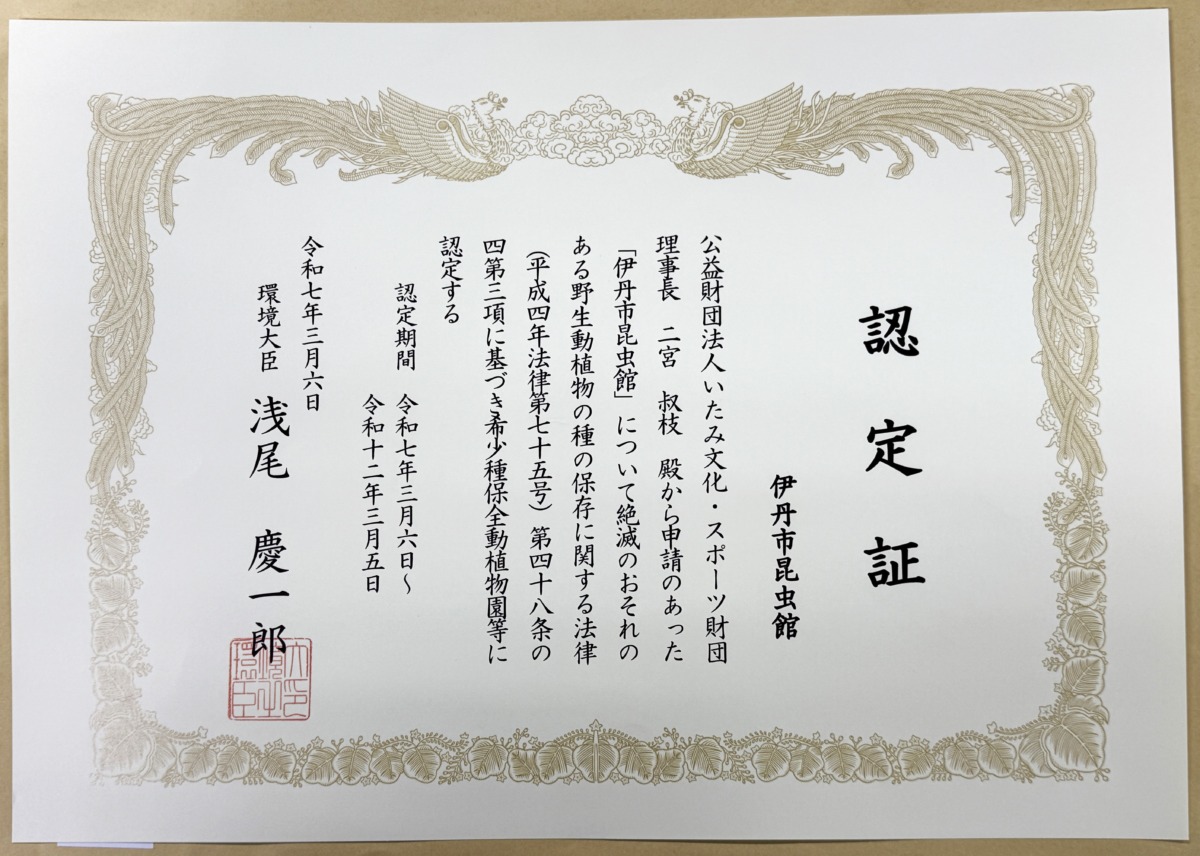 認定証
伊丹市昆虫館
公益財団法人いたみ文化・スポーツ財団
理事長　二宮　叔枝　殿から申請のあった
「伊丹市昆虫館」について絶滅のおそれの
ある野生動植物の種の保存に関する法律
（平成四年法律第七十五号）第四十八条の
四第三項に基づき希少種保全動植物園等に
認定する
認定期間　令和七年三月六日～
令和十二年三月五日
令和七年三月六日
環境大臣　浅尾　慶一郎
環境大臣之印